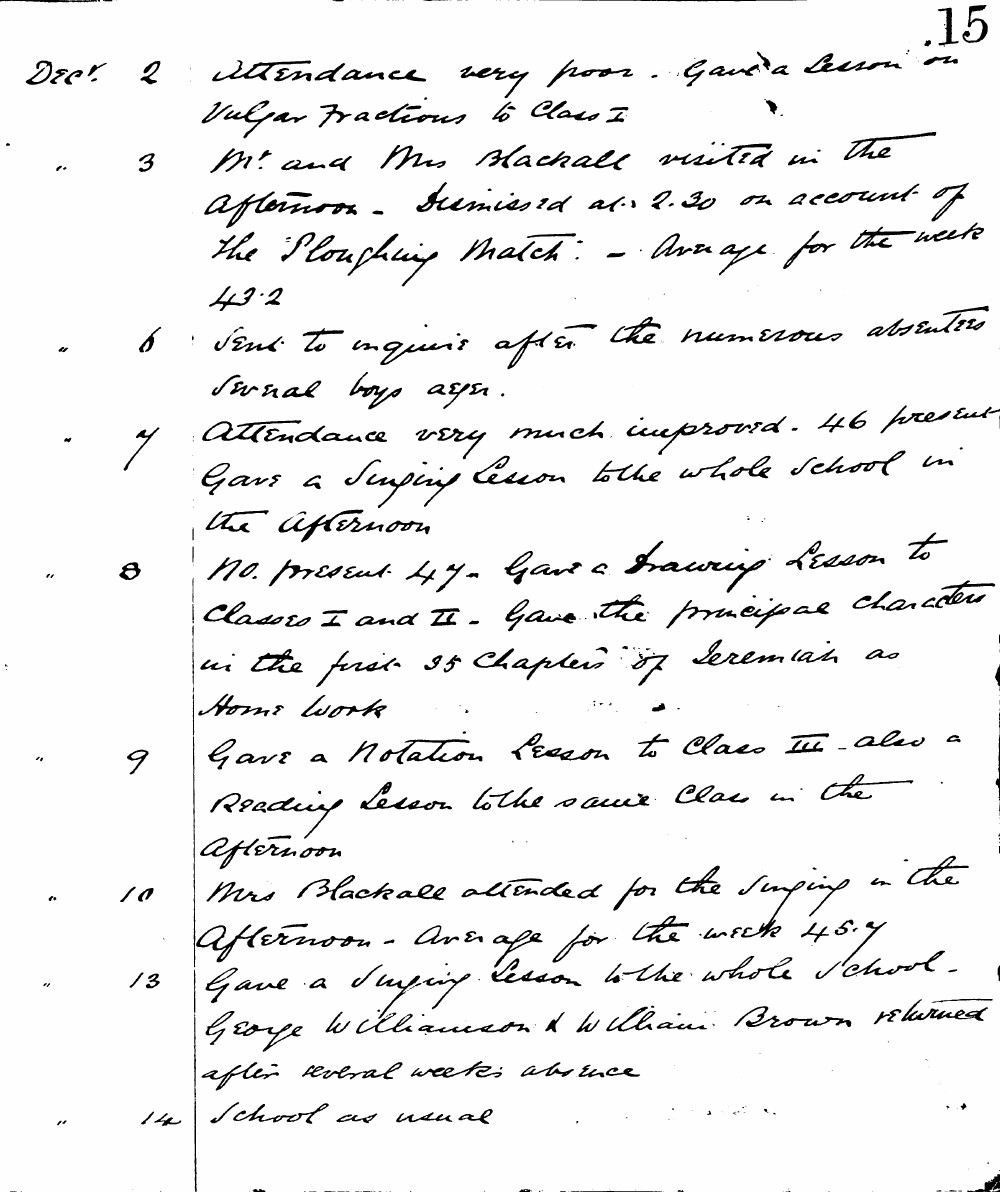 .15
Decr. 2 Attendance very poor. Gave a Lesson on
Vulgar Fractions to Class I
" 3 Mr. and Mrs Blackall visited in the
Afternoon - Dismissed at 2.30 on account of
the "Ploughing Match". - Average for the week
43.2
" 6 Sent to inquire after the numerous absentees
Several boys aeger.
" 7 Attendance very much improved. 46 present
Gave a Singing Lesson to the whole School in
the Afternoon
" 8 No. present 47 - Gave a Drawing Lesson to
Classes I and II - Gave the principal characters
in the first 35 Chapters of Jeremiah as
Home Work
" 9 Gave a Notation Lesson to Class III - also a
Reading Lesson to the same Class in the
Afternoon
" 10 Mrs Blackall attended for the Singing in the
Afternoon - Average for the week 45.7
" 13 Gave a Singing Lesson to the whole School -
George Williamson & William Brown returned
after several weeks absence
" 14 School as usual